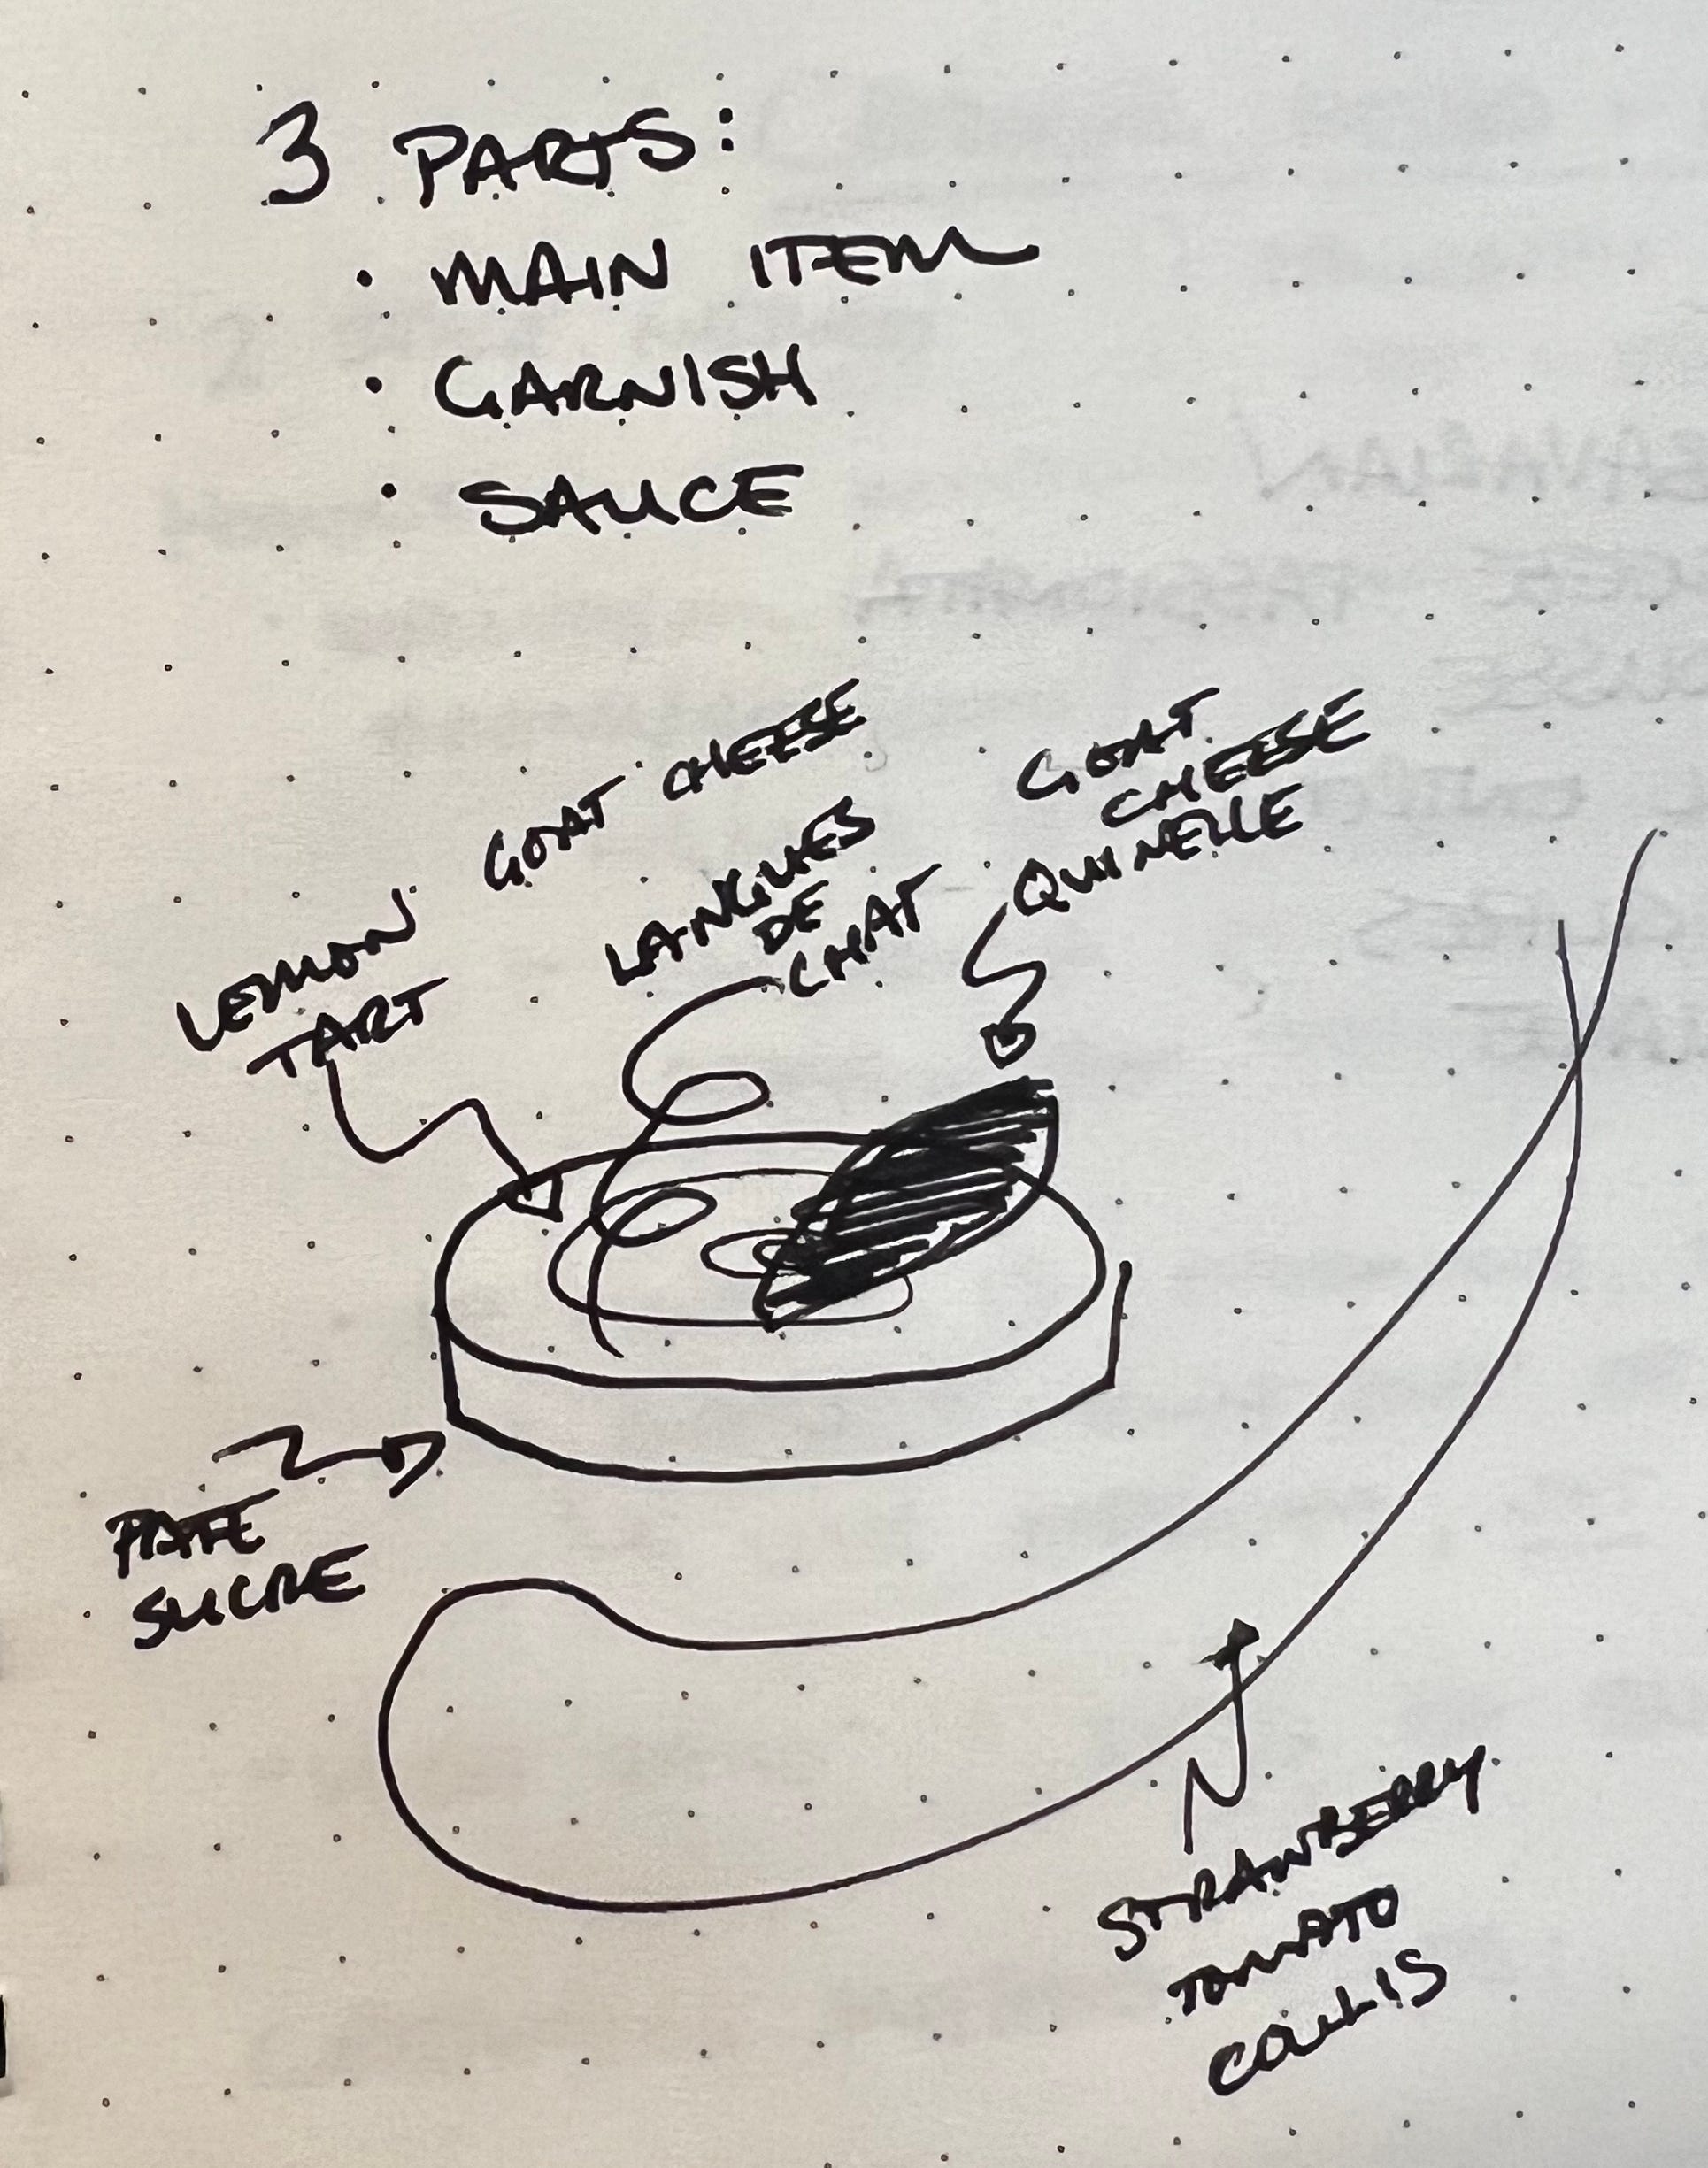 3 PARTS:
· MAIN ITEM
· GARNISH
· SAUCE
LEMON
TART
GOAT CHEESE
LANGUES
DE
CHAT
GOAT
CHEESE
QUINELLE
PATE
SUCRE
STRAWBERRY
TOMATO
COULIS